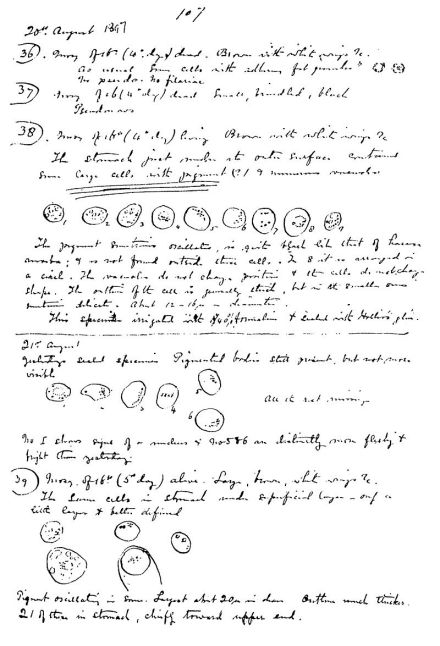 107
20th August 1897
36. Mosq. of 16th (4th day) dead. Brown with white wings &c.
As usual some cells with adherent fat granules
No pseudo. No filariae
37 Mosq. of 16 (4th day) dead Small, brindled, black
38 Mosq. of 16th (4th day) living Brown with white wings &c
The stomach just under its outer surface contained
some large cells with pigment & numerous vacuoles
1 2 3 4 5 6 7 8 9
The pigment sometimes oscillates, is quite black like that of haemamoebae; & is not found outside these cells. In 8 it is arranged in
a circle. The vacuoles do not change position & the cells do not change
shape. The outline of the cell is generally thick, but in the smaller ones
sometimes delicate. About 12-16μ in diameter.
This specimen irrigated with formalin & sealed with Hollis's glue.
21st August
Yesterday's sealed specimen Pigmented bodies still present, but not more
visible
3 4 5 6
No 1 shows signs of a nucleus & No 5 & 6 are distinctly more fleshy &
bright than yesterday.
39 Mosq. of 16th (5th day) alive. Large, brown, white wings &c.
The same cells in stomach under superficial layer - only a
little larger & better defined
Pigment oscillating in some. Largest about 20μ in diam. Outline much thicker.
21 of these in stomach, chiefly toward upper end.